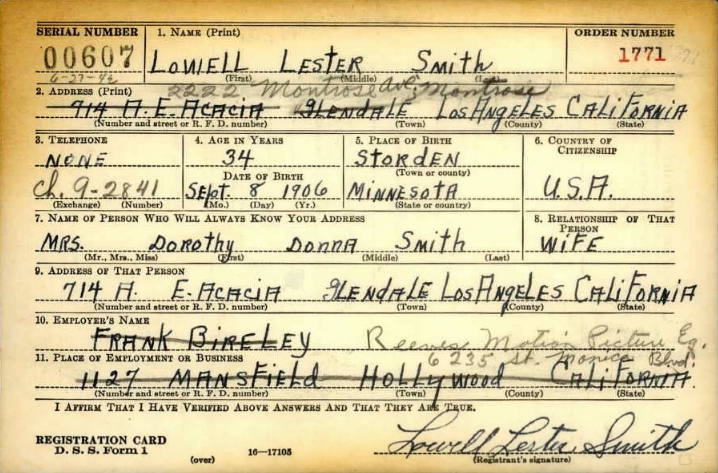 SERIAL NUMBER 1. NAME (Print) ORDER NUMBER
00607 LOWELL LESTER SMITH 1771
6-27-42 (First) (Middle) (Last)
2. ADDRESS (Print) 2222 Montrose Ave, Montrose
714 A. E. ACACIA GLENDALE LOS ANGELES CALIFORNIA
(Number and street or R. F. D. number) (Town) (County) (State)
3. TELEPHONE 4. AGE IN YEARS 5. PLACE OF BIRTH 6. COUNTRY OF CITIZENSHIP
NONE 34 STORDEN
DATE OF BIRTH (Town or county)
Ch. 9-2841 SEPT. 8 1906 MINNESOTA U.S.A.
(Exchange) (Number) (Mo.) (Day) (Yr.) (State or country)
7. NAME OF PERSON WHO WILL ALWAYS KNOW YOUR ADDRESS 8. RELATIONSHIP OF THAT PERSON
MRS. DOROTHY DONNA SMITH WIFE
(Mr., Mrs., Miss) (First) (Middle) (Last)
9. ADDRESS OF THAT PERSON
714 A E-ACACIA GLENDALE LOS ANGELES CALIFORNIA
(Number and street or R. F. D. number) (Town) (County) (State)
10. EMPLOYER'S NAME
FRANK BIRELEY Reeves Motion Picture Eq.
11. PLACE OF EMPLOYMENT OR BUSINESS 6235 St. Monica Blvd.
1127 MANSFIELD HOLLYWOOD CALIFORNIA
(Number and street or R. F. D. number) (Town) (County) (State)
I AFFIRM THAT I HAVE VERIFIED ABOVE ANSWERS AND THAT THEY ARE TRUE.
REGISTRATION CARD
D. S. S. Form 1 (over) 16—17105 Lowell Lester Smith
(Registrant's signature)